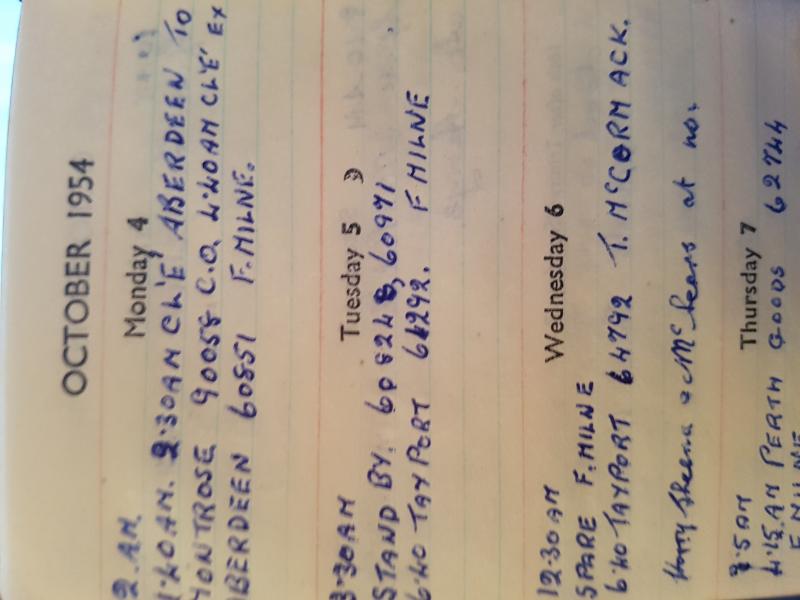 OCTOBER 1954
Monday 4
2 AM.
1.40AM. 2.30AM CL'E' ABERDEEN TO
MONTROSE 90058 C.O. 4.40AM CL'E' EX
ABERDEEN 60851 F.MILNE.
Tuesday 5
3.30AM
STAND BY. 60971
6.40 TAYPORT F MILNE
Wednesday 6
12.30AM
SPARE F.MILNE
6.40 TAYPORT 64792 T. McCORMACK.
Harry Sheena & at no.
Thursday 7
4.15.AM PERTH GOODS 62744
F MILNE